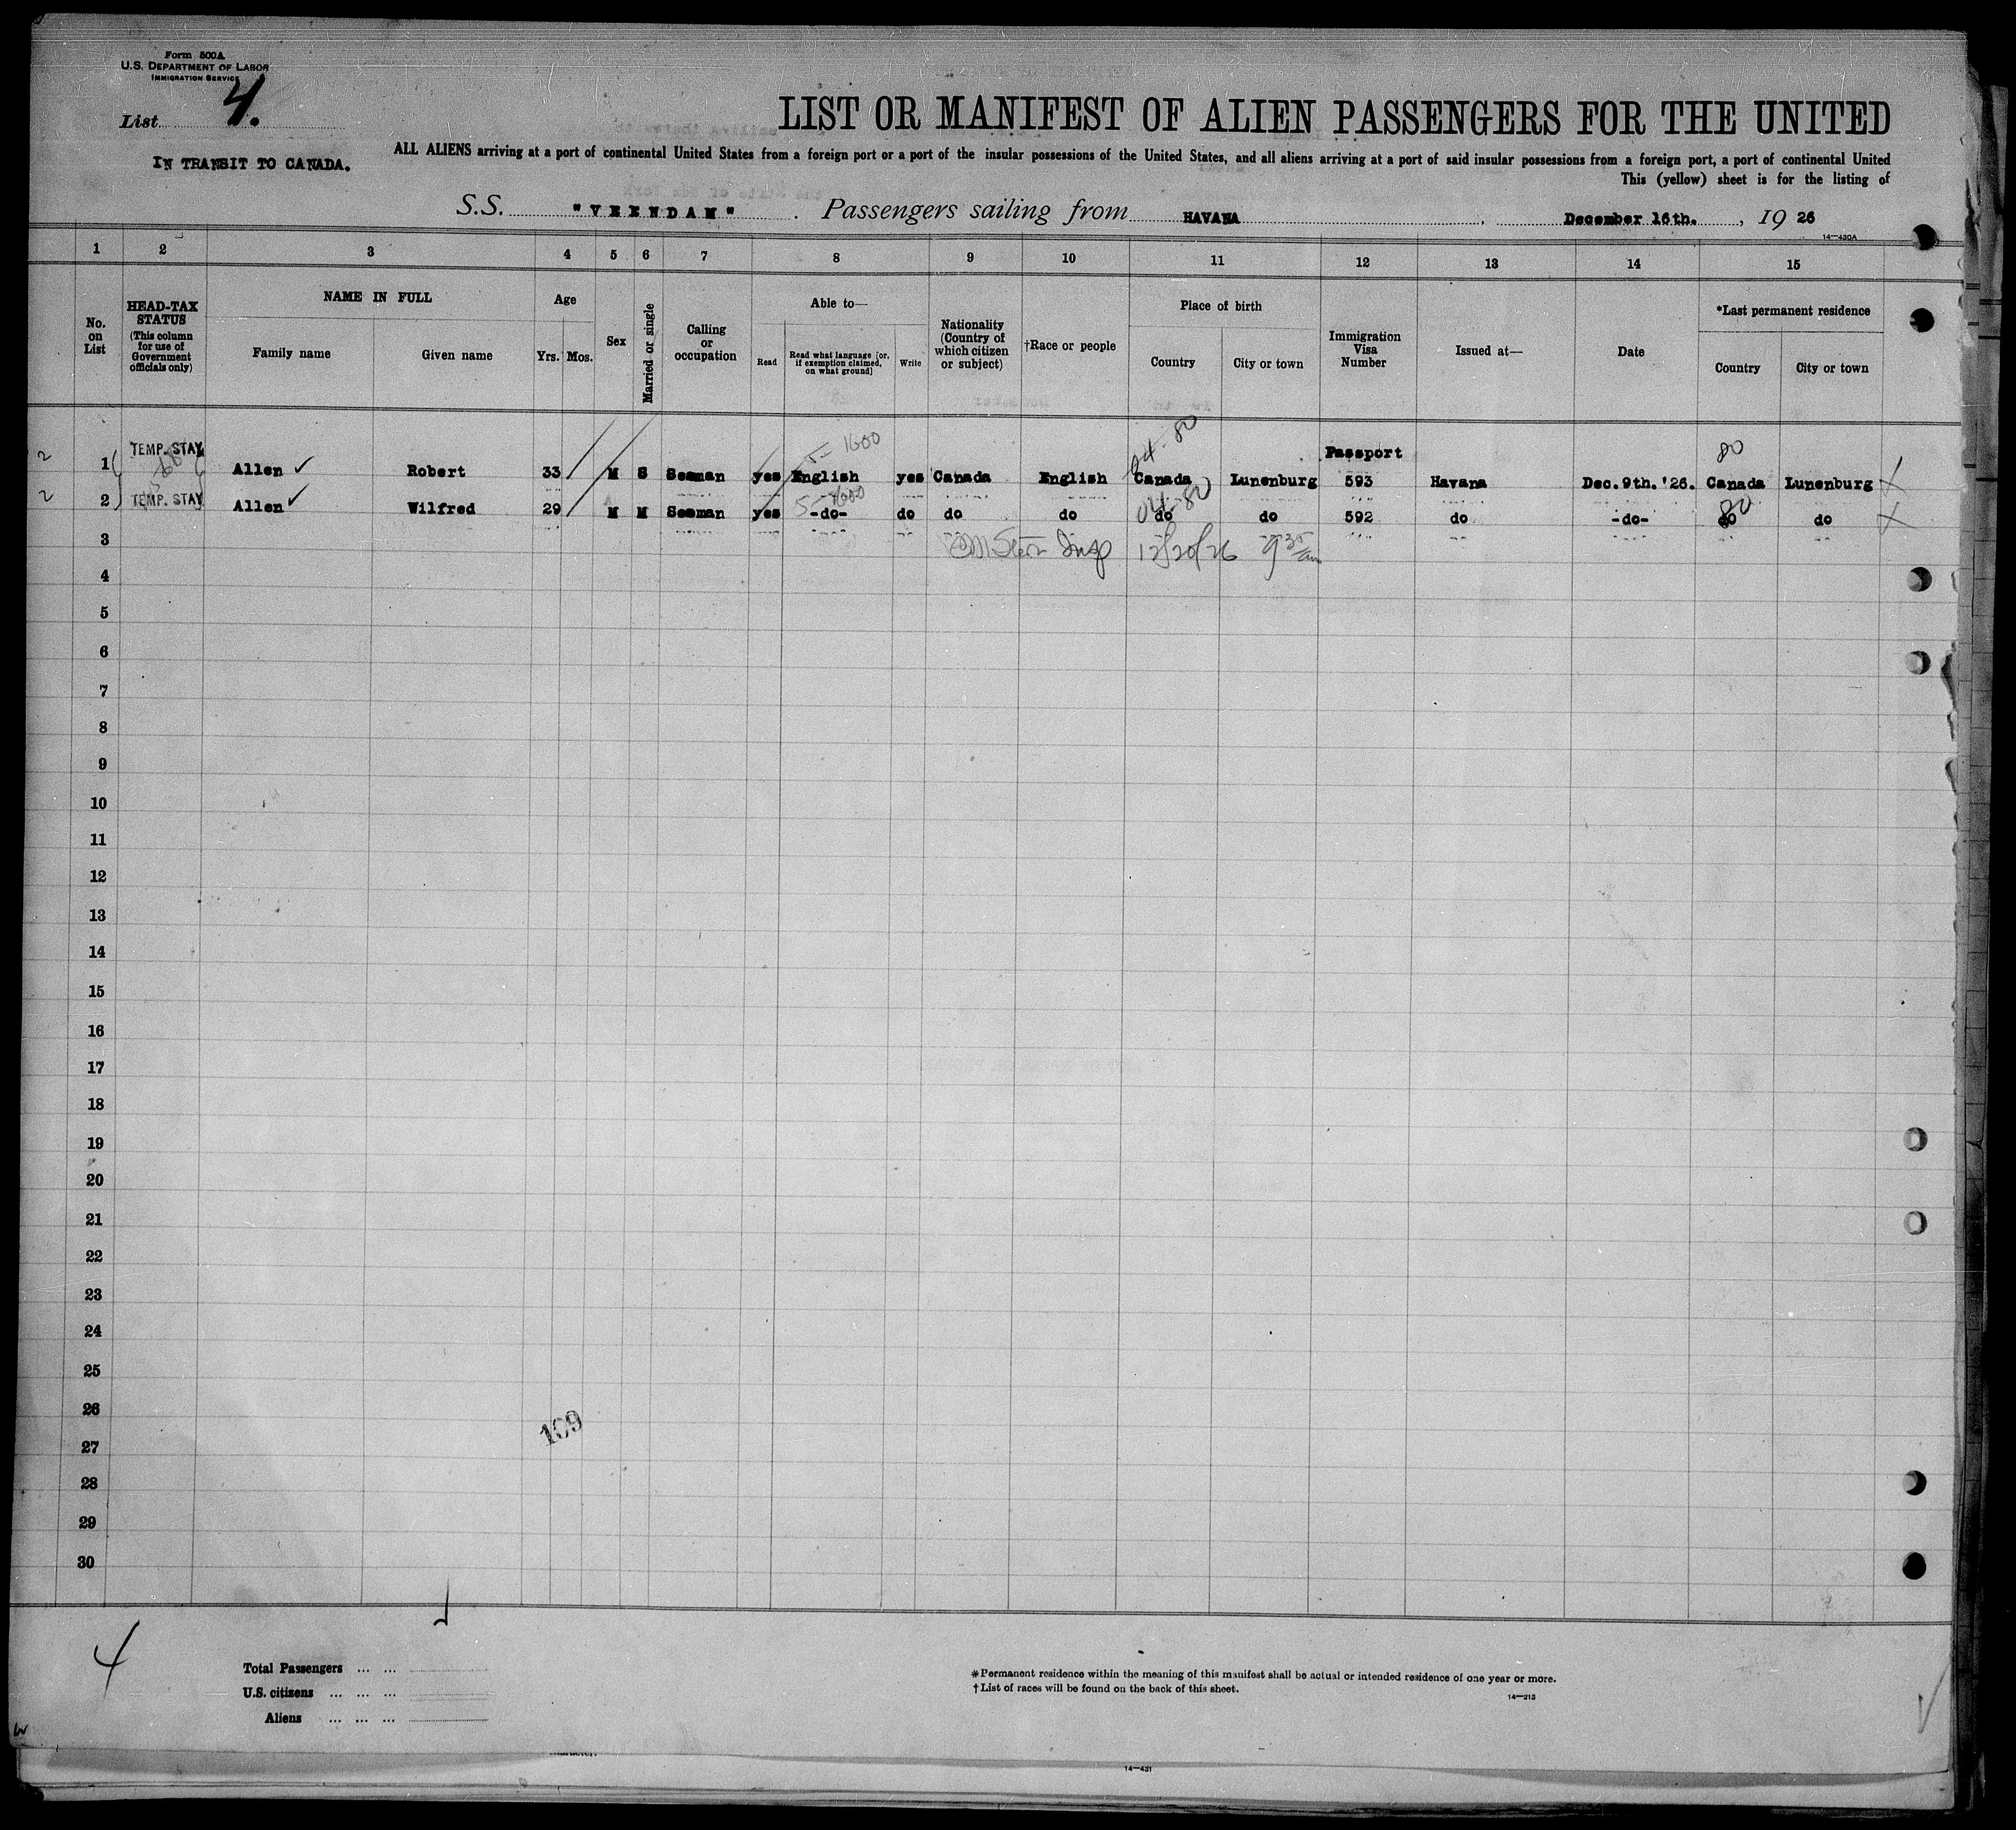 Form 500A
U.S. DEPARTMENT OF LABOR
IMMIGRATION SERVICE
List 4.
IN TRANSIT TO CANADA.
LIST OR MANIFEST OF ALIEN PASSENGERS FOR THE UNITED
ALL ALIENS arriving at a port of continental United States from a foreign port or a port of the insular possessions of the United States, and all aliens arriving at a port of said insular possessions from a foreign port, a port of continental United
This (yellow) sheet is for the listing of
S.S. "VEENDAM". Passengers sailing from HAVANA, December 16th., 1926
14—430A
1 2 3 4 5 6 7 8 9 10 11 12 13 14 15
No. on List
HEAD-TAX STATUS (This column for use of Government officials only)
NAME IN FULL
Family name Given name
Age
Yrs. Mos.
Sex
Married or single
Calling or occupation
Able to—
Read Read what language [or, if exemption claimed, on what ground] Write
Nationality (Country of which citizen or subject)
†Race or people
Place of birth
Country City or town
Immigration Visa Number
Issued at—
Date
*Last permanent residence
Country City or town
5- 1600 04-80 Passport 80
2 1 TEMP. STAY Allen ✓ Robert 33 M S Seaman yes English yes Canada English Canada Lunenburg 593 Havana Dec.9th.'26. Canada Lunenburg X
5- 1600 04-80 80
2 2 TEMP. STAY Allen ✓ Wilfred 29 M M Seaman yes -do- do do do do do 592 do -do- do do X
3 Insp 12/20/26 9 35 am
4
5
6
7
8
9
10
11
12
13
14
15
16
17
18
19
20
21
22
23
24
25
26
109
27
28
29
30
4
Total Passengers ... ...
U.S. citizens ... ... ...
Aliens ... ... ...
*Permanent residence within the meaning of this manifest shall be actual or intended residence of one year or more.
†List of races will be found on the back of this sheet.
14—213
14—431